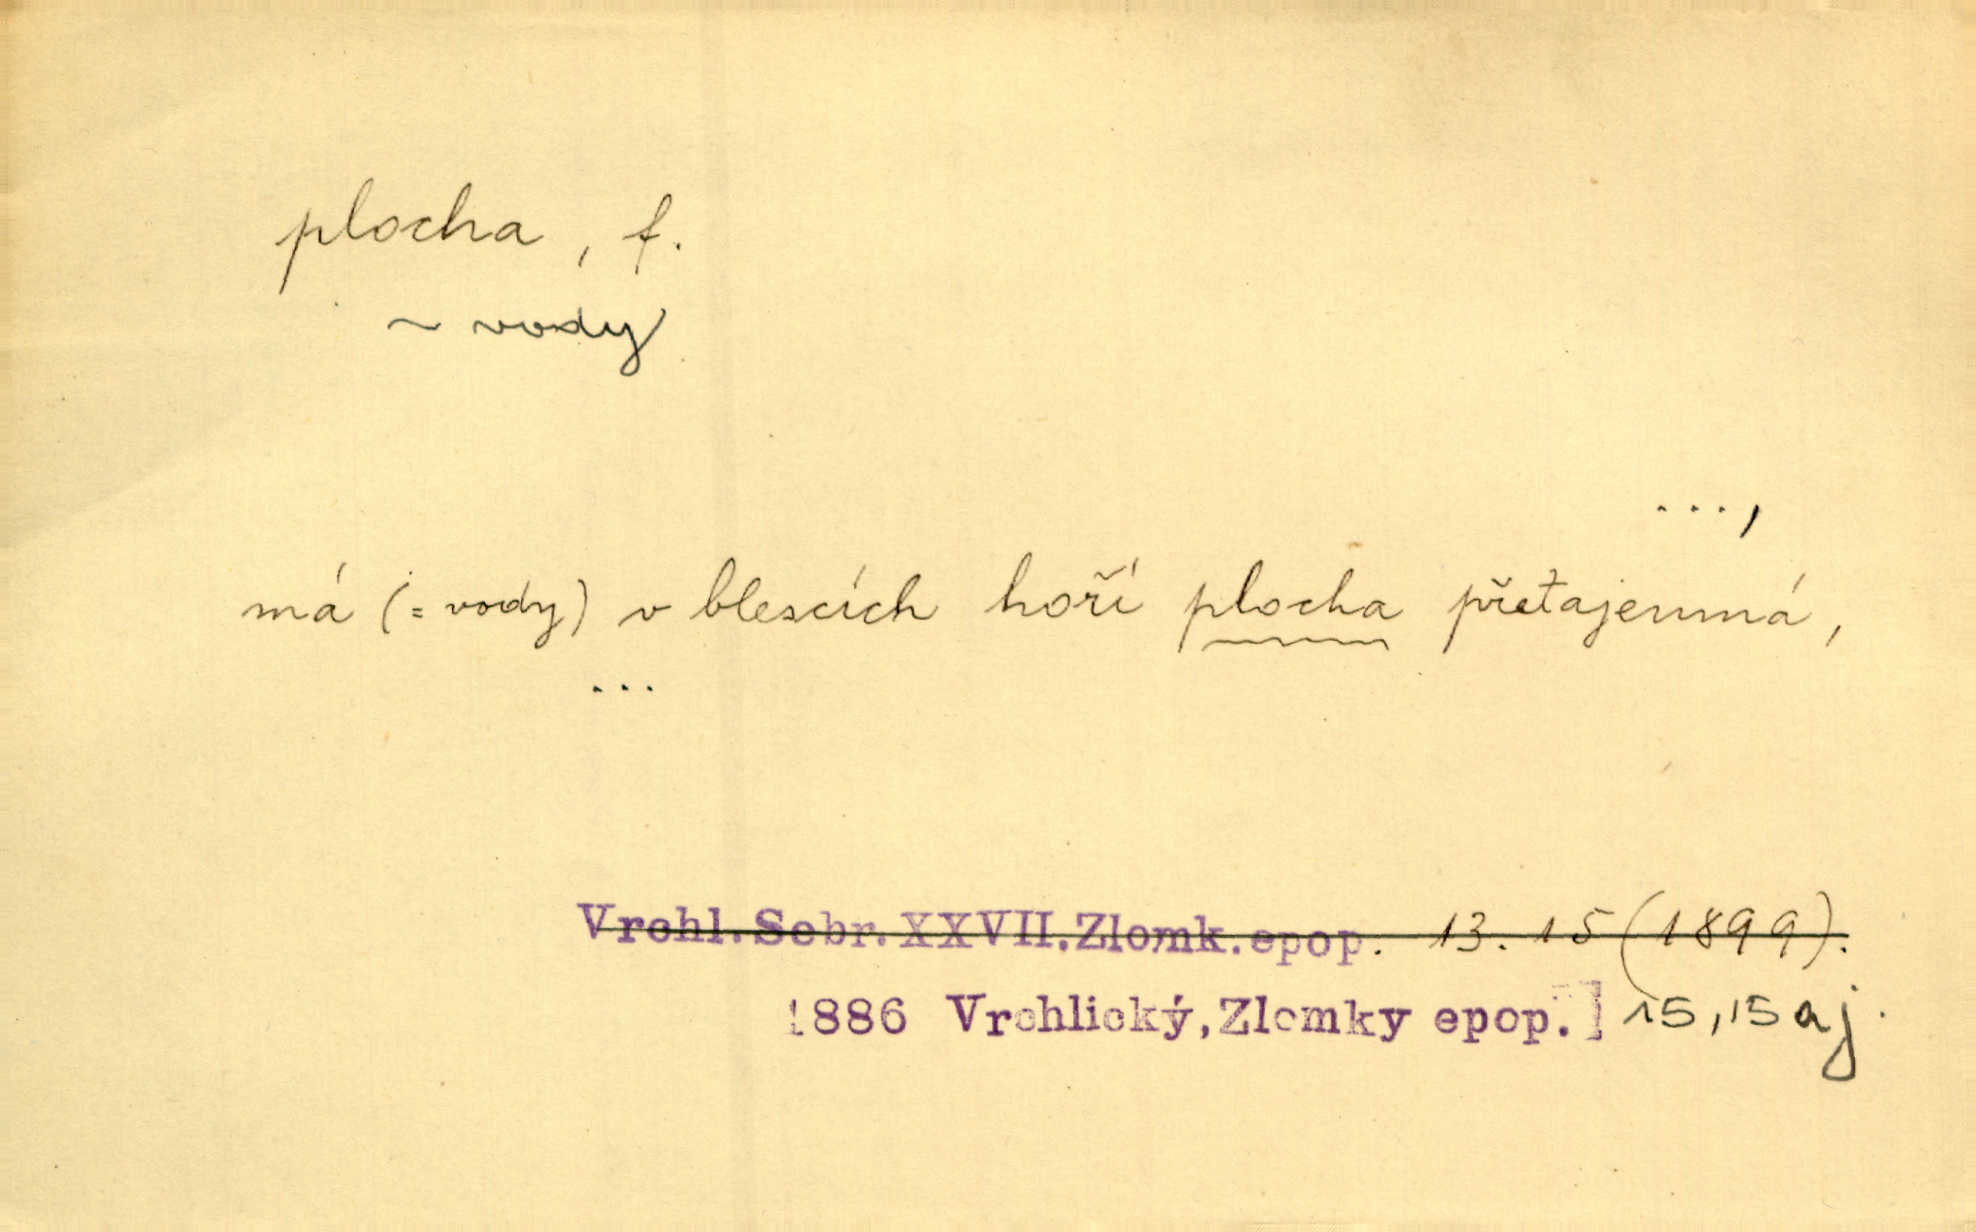 plocha, f.
~ vody
...,
má (= vody) v blescích hoří plocha přetajemná,
...
Vrchl. Sebr. XXVII. Zlomk. epop. 13. 15 (1899).
1886 Vrchlický, Zlomky epop.] 15,15 aj.